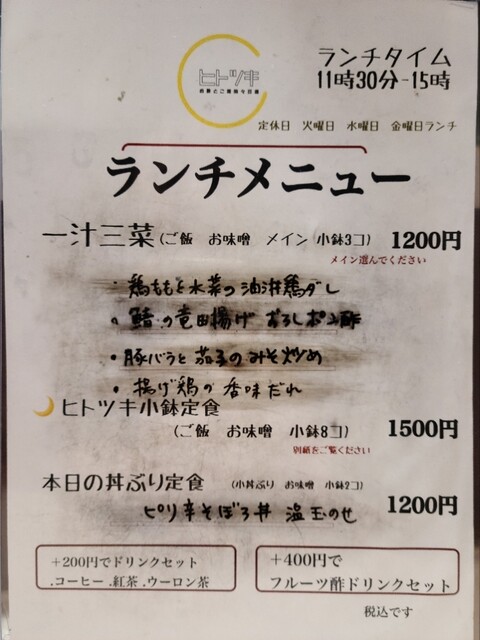 ヒトツキ
ランチタイム
11時30分-15時
定休日 火曜日 水曜日 金曜日ランチ
ランチメニュー
一汁三菜(ご飯 お味噌 メイン 小鉢3コ) 1200円
メイン選んでください
・鶏ももと水菜の油淋鶏ダレ
・鯖の竜田揚げ おろしポン酢
・豚バラと茄子のみそ炒め
・揚げ鶏の香味だれ
ヒトツキ小鉢定食
(ご飯 お味噌 小鉢8コ) 1500円
別紙をご覧ください
本日の丼ぶり定食 (小丼ぶり お味噌 小鉢2コ) 1200円
ピリ辛そぼろ丼 温玉のせ
+200円でドリンクセット
.コーヒー .紅茶 .ウーロン茶
+400円で
フルーツ酢ドリンクセット
税込です